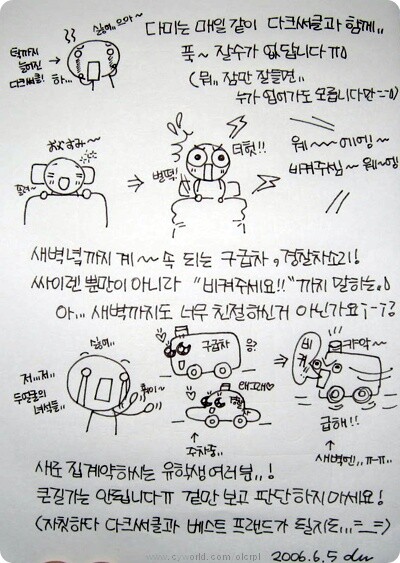 다미는 매일 같이 다크써클과 함께..
푹~ 잘수가 없답니다ㅠ0
(뭐.. 잠만 잘들면..
누가 업어가도 모릅니다만=-0)
턱까지
늘어진
다크써클!
하...
싫어..으아~
おやすみ~
졸려~
벌떡!
더헛!!
웨~~에엥~
비켜주십~ 웨~엥
새벽녘까지 계~~속 되는 구급차, 경찰차소리!
싸이렌 뿐만이 아니라 "비켜주세요!!"까지 말하는..
아... 새벽까지도 너무 친절하신거 아닌가요ㅜㅜ?
저...저..
두얼굴의
녀석들..
싫어..
휙이~
구급차
응?
왜그래♡
경찰
주차중..
비켜
캬악~
급해!!
새벽엔..ㅠ-ㅠ..
새로 집계약하시는 유학생 여러분..!
큰길가는 안됩니다ㅠ 겉만 보고 판단하지 마세요!
(자칫하다 다크써클과 베스트 프랜드가 될지도...=_=)
2006.6.5
www.cyworld.com/olcrpl